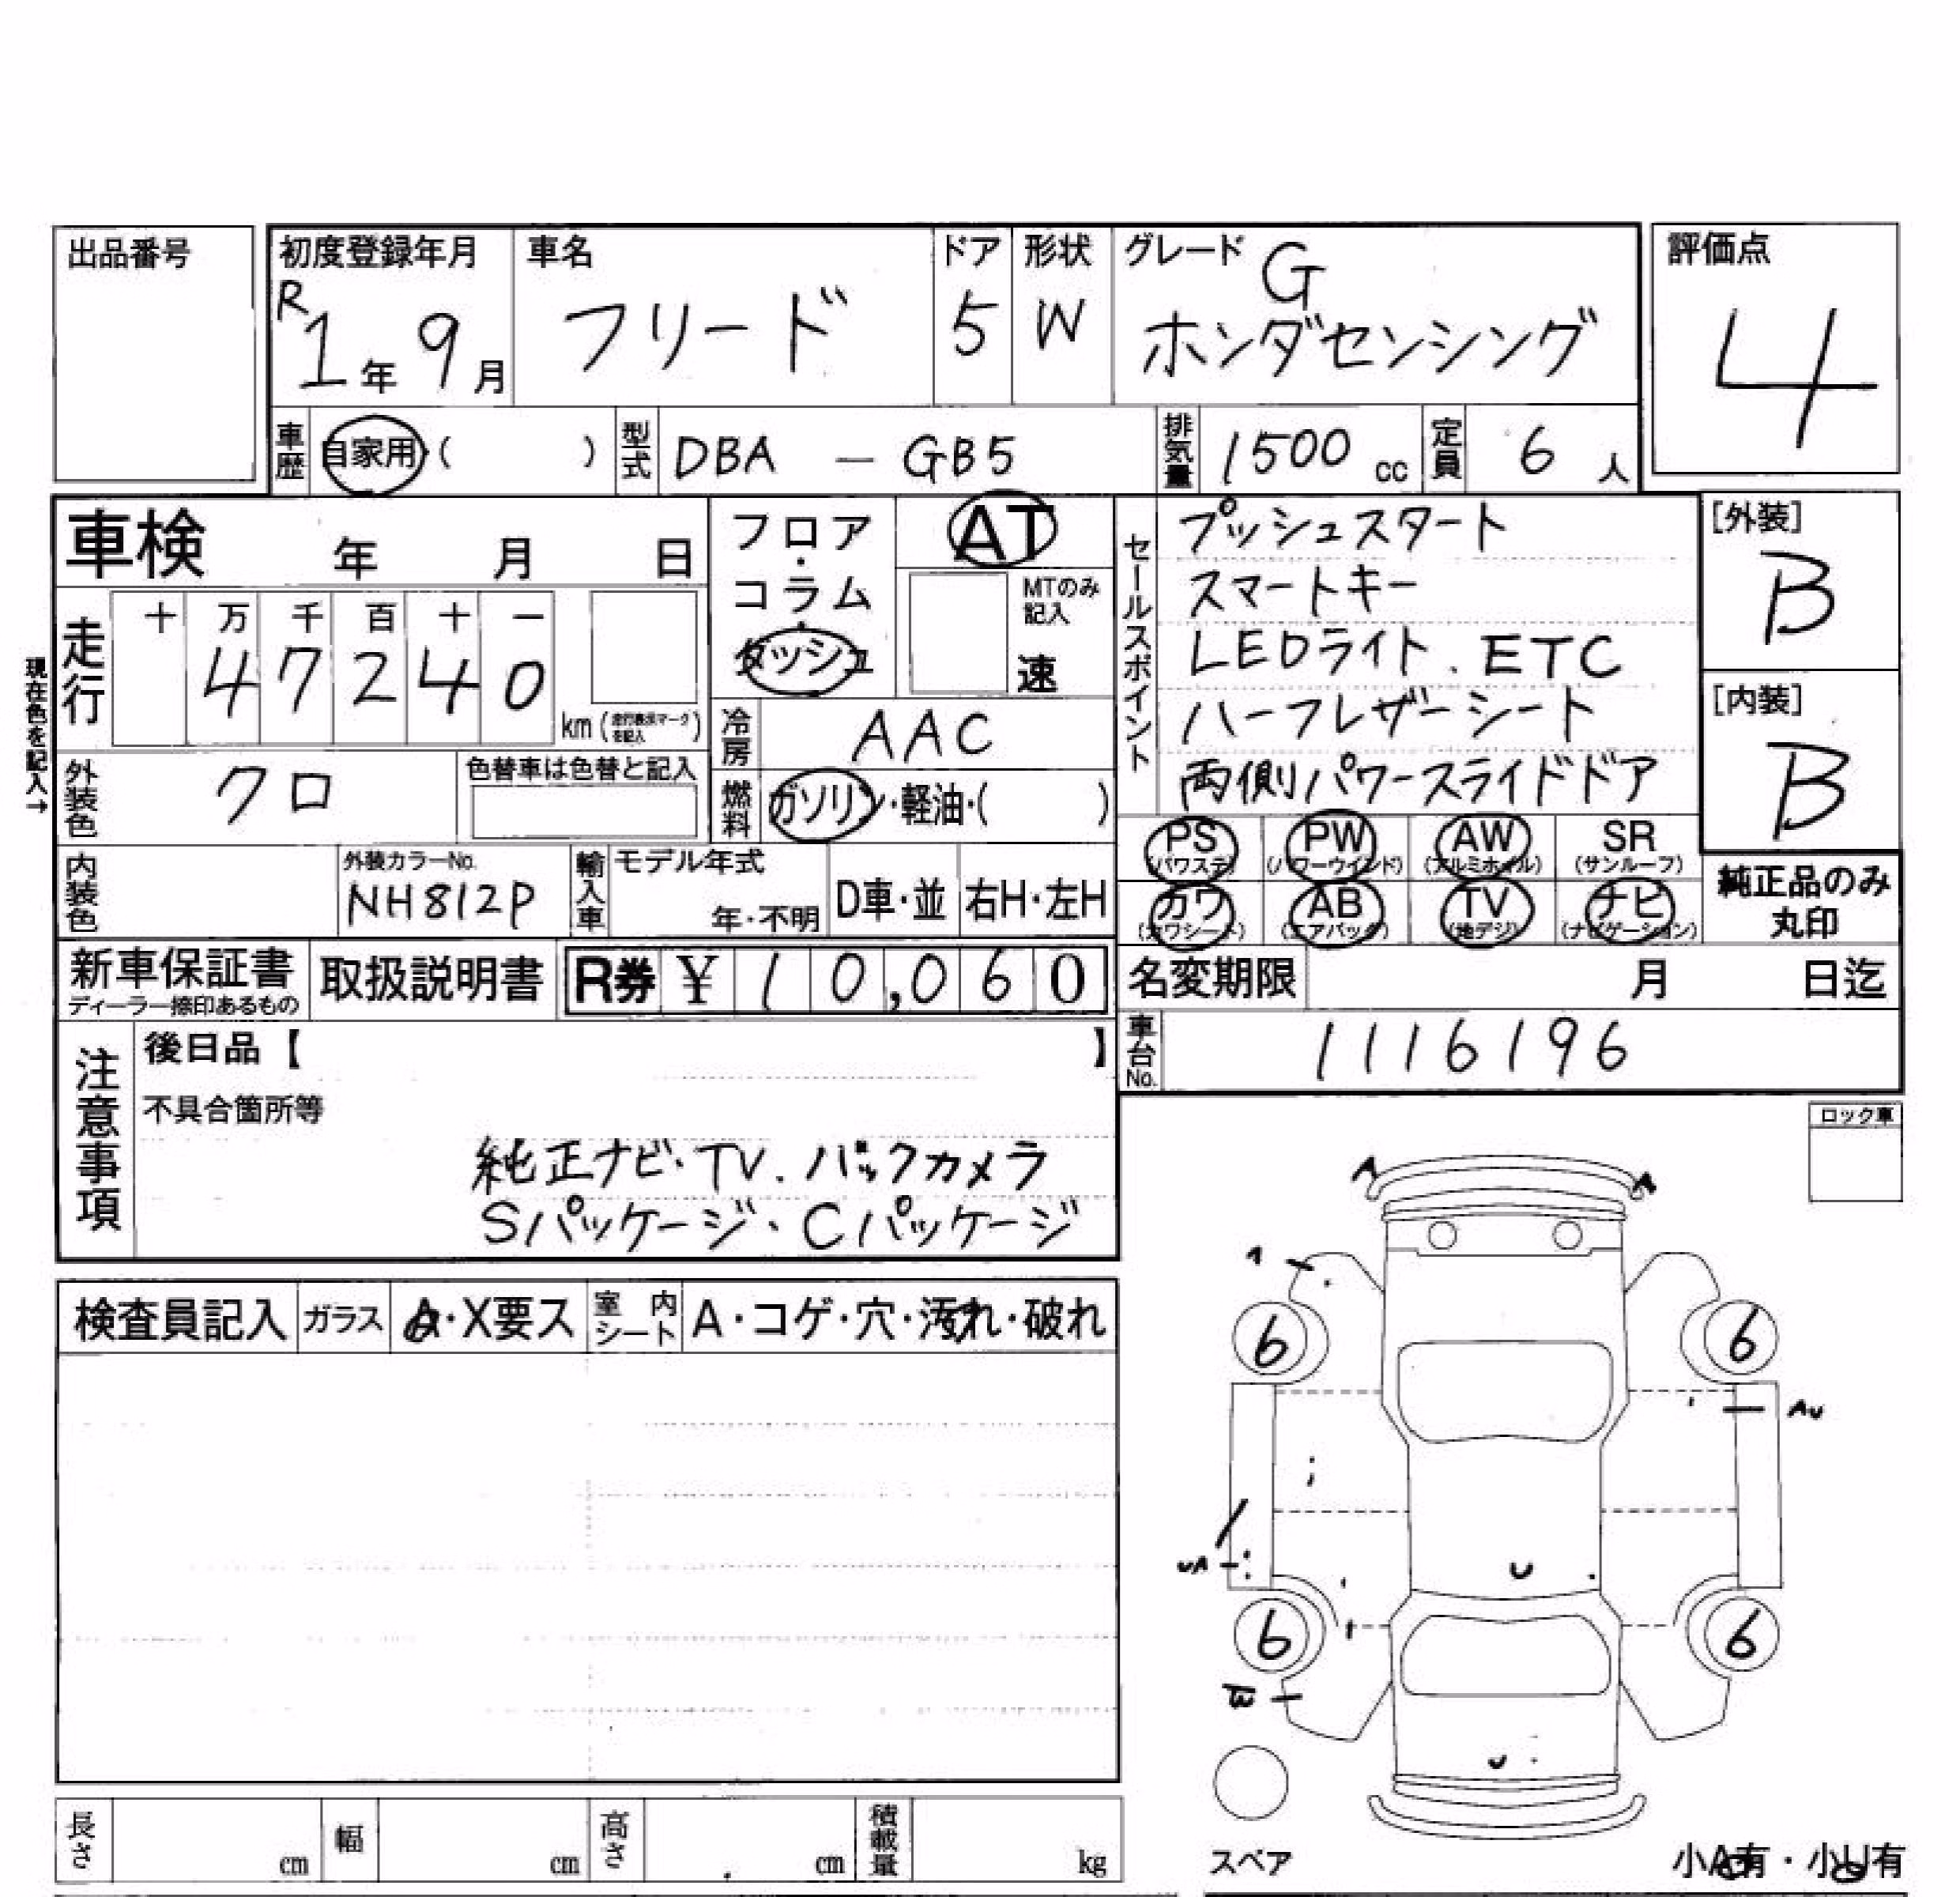 出品番号
初度登録年月
R1年9月
車名
フリード
ドア
5
形状
W
グレード G
ホンダセンシング
評価点
4
車歴 自家用・( )
型式 DBA - GB5
排気量 1500 cc
定員 6 人
車検 年 月 日
フロア・コラム・ダッシュ
AT
MTのみ記入
速
セールスポイント
プッシュスタート
スマートキー
LEDライト.ETC
ハーフレザーシート
両側パワースライドドア
[外装]
B
[内装]
B
現在色を記入→
走行
十 万 千 百 十 一
4 7 2 4 0
km (走行表示マークを記入)
冷房 AAC
外装色 クロ
色替車は色替と記入
燃料 ガソリン・軽油・( )
PS (パワステ)
PW (パワーウインド)
AW (アルミホイル)
SR (サンルーフ)
カワ (カワシート)
AB (エアバック)
TV (地デジ)
ナビ (ナビゲーション)
純正品のみ
丸印
内装色
外装カラーNo.
NH812P
輸入車
モデル年式
年・不明
D車・並
右H・左H
新車保証書
ディーラー捺印あるもの
取扱説明書
R券 ¥ 10,060
名変期限 月 日迄
車台No. 1116196
注意事項
後日品【 】
不具合箇所等
純正ナビ・TV.バックカメラ
Sパッケージ、Cパッケージ
ロック車
検査員記入
ガラス A・X要ス
室内シート A・コゲ・穴・汚れ・破れ
A A
A
6 6
AU
UA
U
6 6
U
長さ cm
幅 cm
高さ cm
積載量 kg
スペア
小A有・小U有